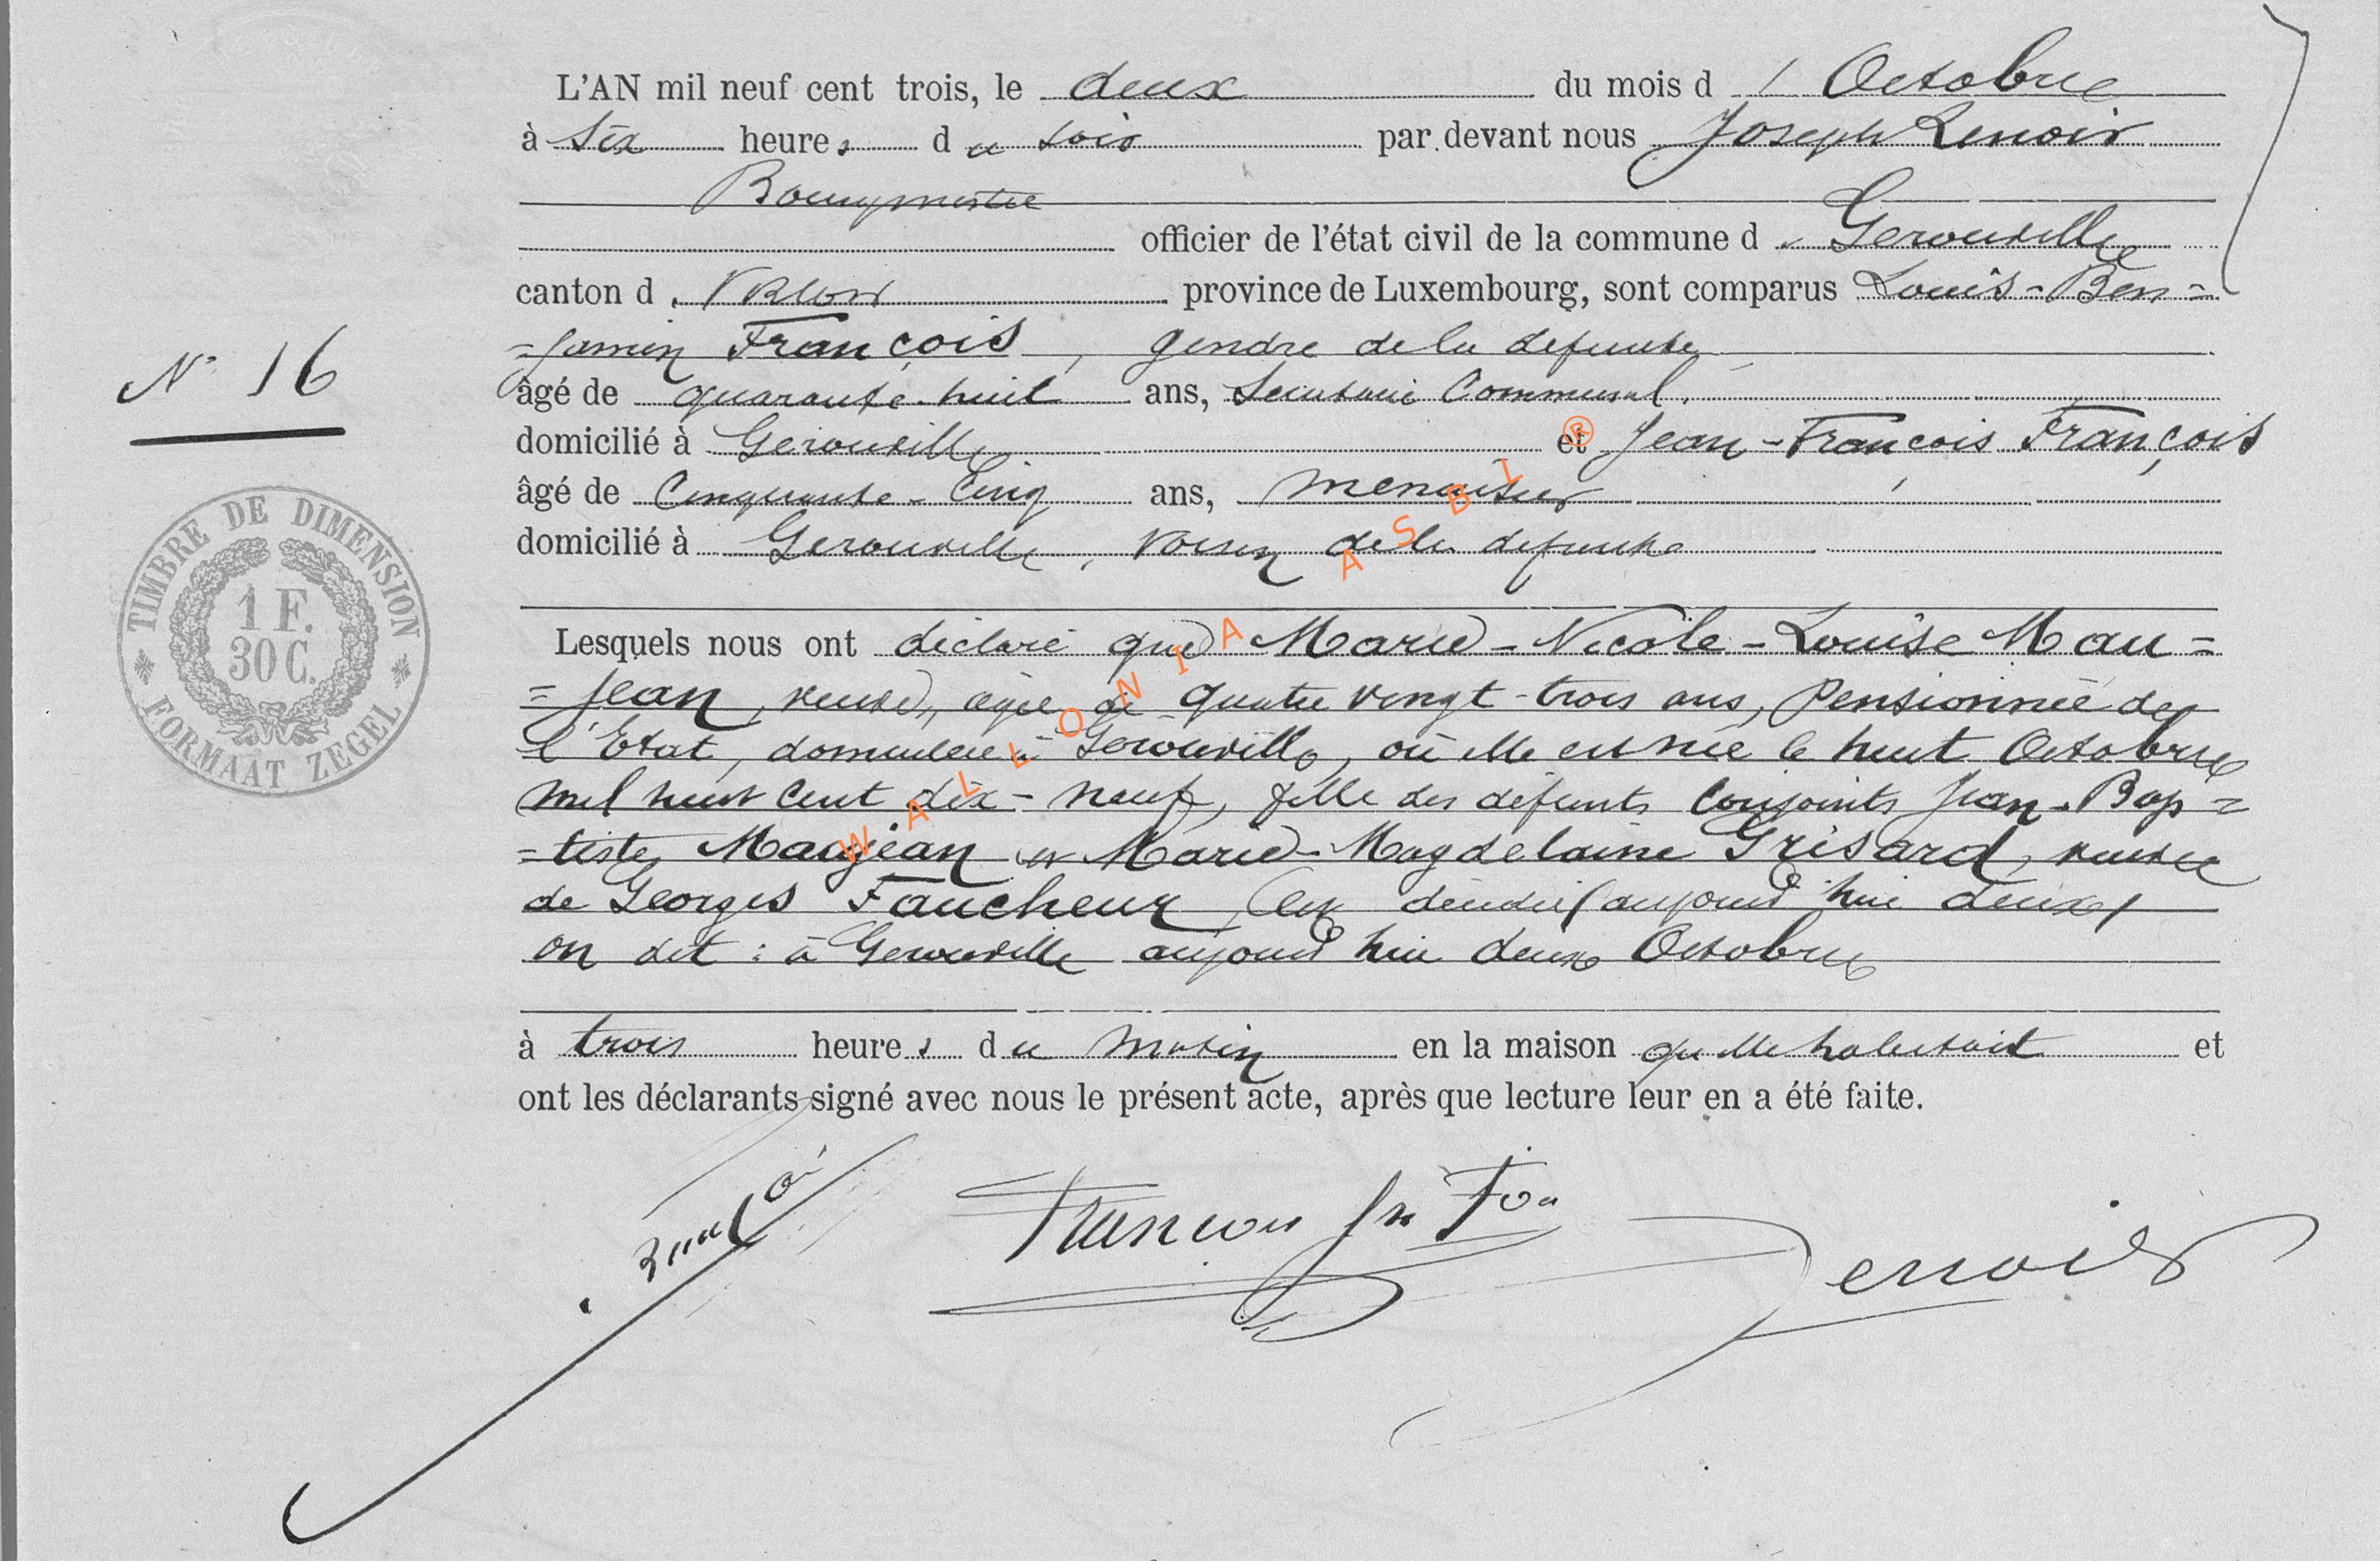 L'AN mil neuf cent trois, le deux du mois d' Octobre
à Six heures du soir par devant nous Joseph Lenoir
Bourgmestre
officier de l'état civil de la commune de Gerouville
canton de Virton province de Luxembourg, sont comparus Louis-Ben=
=jamin François, gendre de la defunte
N° 16
âgé de quarante-huit ans, Secrétaire Communal,
domicilié à Gerouville et Jean-François François
âgé de Cinquante-Cinq ans, menuisier
domicilié à Gerouville, Voisin de la defunte
TIMBRE DE DIMENSION
1 F.
30 C.
FORMAAT ZEGEL
Lesquels nous ont déclaré que Marie-Nicole-Louise Mau=
=jean, veuve, agée de quatre vingt-trois ans, Pensionnée de
l'Etat, domiciliée à Gerouville, où elle est née le huit Octobre
mil huit Cent dix-neuf, fille des défunts Conjoints Jean-Bap=
=tiste Maujean et Marie-Magdelaine Grisard, veuve
de Georges Faucheur, est décédée (aujourd'hui deux)
on dit : à Gerouville aujourd'hui deux Octobre
à trois heures du matin en la maison qu'elle habitait et
ont les déclarants signé avec nous le présent acte, après que lecture leur en a été faite.
François Jn Fois
Lenoir
WALLONIA ASBL ®